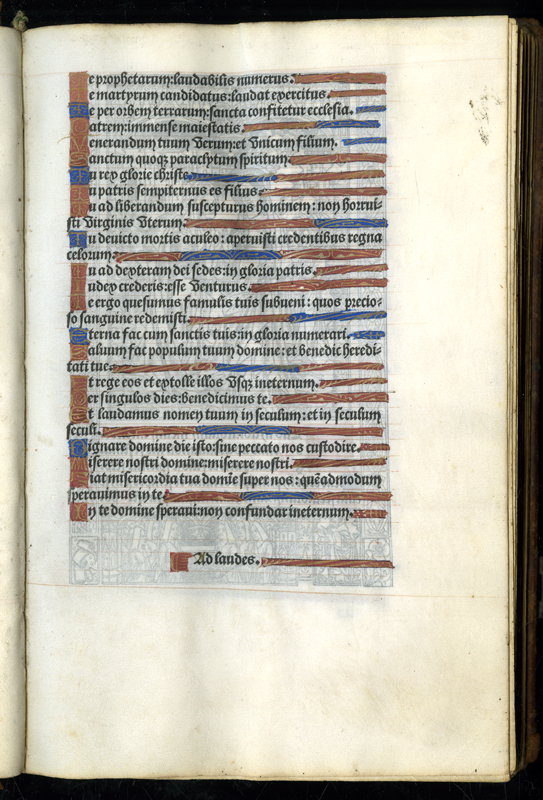 Te prophetarum: laudabilis numerus.
Te martyrum candidatus: laudat exercitus.
Te per orbem terrarum: sancta confitetur ecclesia.
Patrem: immense maiestatis.
Venerandum tuum verum: et vnicum filium.
Sanctum quoq; paraclytum spiritum.
Tu rex glorie christe.
Tu patris sempiternus es filius.
Tu ad liberandum suscepturus hominem: non horrui-
sti virginis vterum.
Tu deuicto mortis aculeo: aperuisti credentibus regna
celorum.
Tu ad dexteram dei sedes: in gloria patris.
Iudex crederis: esse venturus.
Te ergo quesumus famulis tuis subueni: quos precio-
so sanguine redemisti.
Eterna fac cum sanctis tuis: in gloria numerari.
Saluum fac populum tuum domine: et benedic heredi-
tati tue.
Et rege eos et extolle illos vsq; ineternum.
Per singulos dies: benedicimus te.
Et laudamus nomen tuum in seculum: et in seculum
seculi.
Dignare domine die isto: sine peccato nos custodire.
Miserere nostri domine: miserere nostri.
Fiat misericordia tua domĩe super nos: quẽadmodum
sperauimus in te.
In te domine speraui: non confundar ineternum.
Ad laudes.